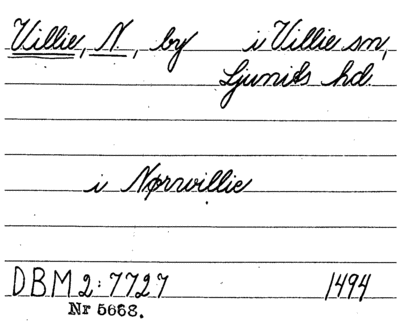 Villie, N., by i Villie sn,
Ljunits hd.
i Nørwillie
DBM 2:7727 1494
Nr 5668.